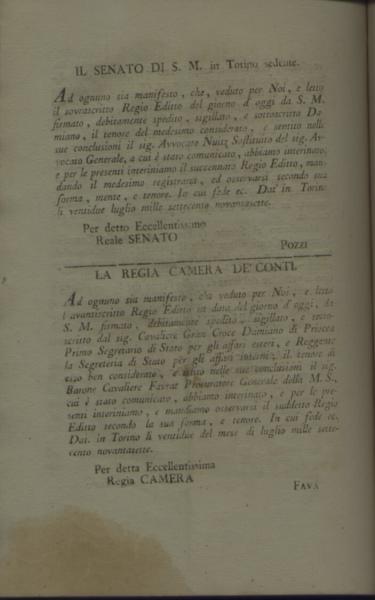 IL SENATO DI S. M. in Torino sedente.
Ad ognuno sia manifesto, che, veduto per Noi, e letto
il sovrascritto Regio Editto del giorno d'oggi da S. M.
firmato, debitamente spedito, sigillato, e sottoscritto Da-
miano, il tenore del medesimo considerato, e sentito nelle
sue conclusioni il sig. Avvocato Nuitz Sostituito del sig. Av-
vocato Generale, a cui è stato comunicato, abbiamo interinato,
e per le presenti interiniamo il succennato Regio Editto, man-
dando il medesimo registrarsi, ed osservarsi secondo sua
forma, mente, e tenore. In cui fede ec. Dat' in Torino
li ventidue luglio mille settecento novantasette.
Per detto Eccellentissimo
Reale SENATO
POZZI
LA REGIA CAMERA DE' CONTI.
Ad ognuno sia manifesto, che veduto per Noi, e letto
l'avantiscritto Regio Editto in data del giorno d'oggi, da
S. M. firmato, debitamente spedito, sigillato, e sotto-
scritto dal sig. Cavaliere Gran Croce Damiano di Priocca
Primo Segretario di Stato per gli affari esteri, e Reggente
la Segreteria di Stato per gli affari interni, il tenore di
esso ben considerato, e udito nelle sue conclusioni il sig.
Barone Cavaliere Favrat Procuratore Generale della M. S.,
cui è stato comunicato, abbiamo interinato, e per le pre-
senti interiniamo, e mandiamo osservarsi il suddetto Regio
Editto secondo la sua forma, e tenore. In cui fede ec.
Dat. in Torino li ventidue del mese di luglio mille sette-
cento novantasette.
Per detta Eccellentissima
Regia CAMERA
FAVA